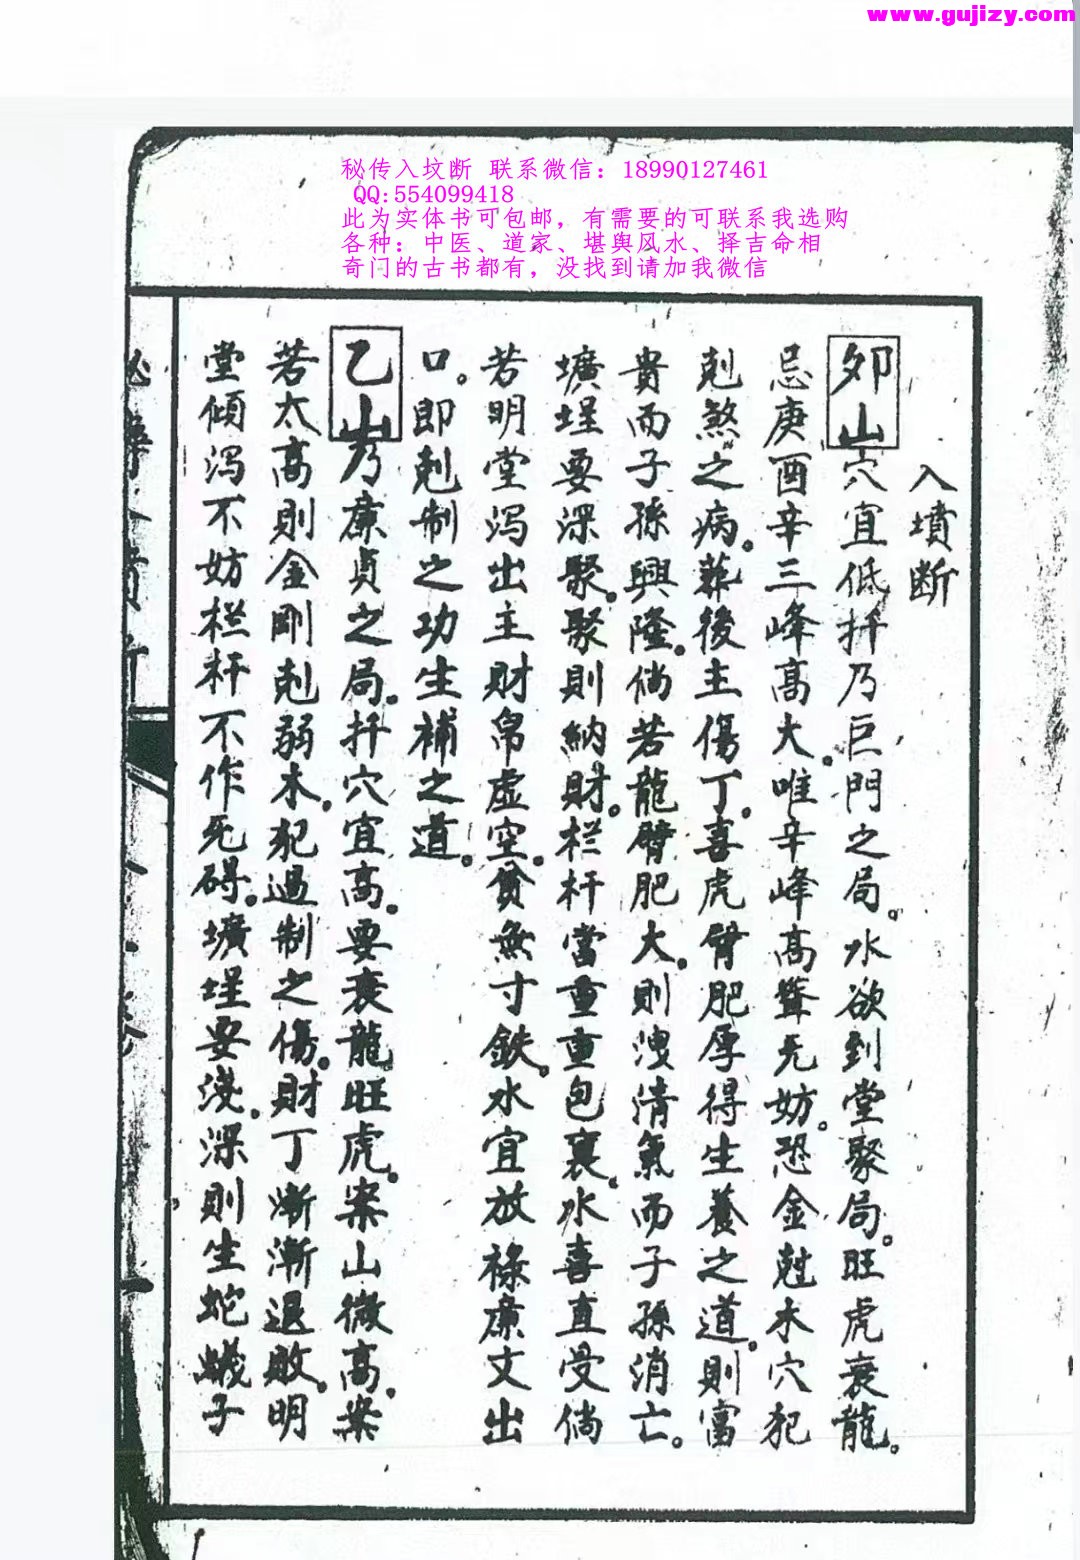 www.gujizy.com
秘传入坟断 联系微信：18990127461
QQ:554099418
此为实体书可包邮，有需要的可联系我选购
各种：中医、道家、堪舆风水、择吉命相
奇门的古书都有，没找到请加我微信
入墳断
卯山穴宜低扦乃巨門之局。水欲到堂聚局。旺虎衰龍。
忌庚酉辛三峰高大。唯辛峰高聳无妨。恐金尅木穴犯
剋煞之病。葬後主傷丁。喜虎臂肥厚得生養之道。則富
貴而子孫興隆。倘若龍臂肥大。則洩清氣而子孫消亡。
壙埕要深聚。聚則納財。栏杆當重重包裹。水喜直受倘
若明堂瀉出主財帛虛空。貧無寸鉄。水宜放祿廉文出
口。即剋制之功生補之道。
乙山乃廉貞之局。扦穴宜高。要衰龍旺虎。案山微高。案
若太高則金剛剋弱木。犯過制之傷。財丁漸漸退敗。明
堂傾瀉不妨栏杆不作死碍。壙埕要淺。深則生蛇蟻子